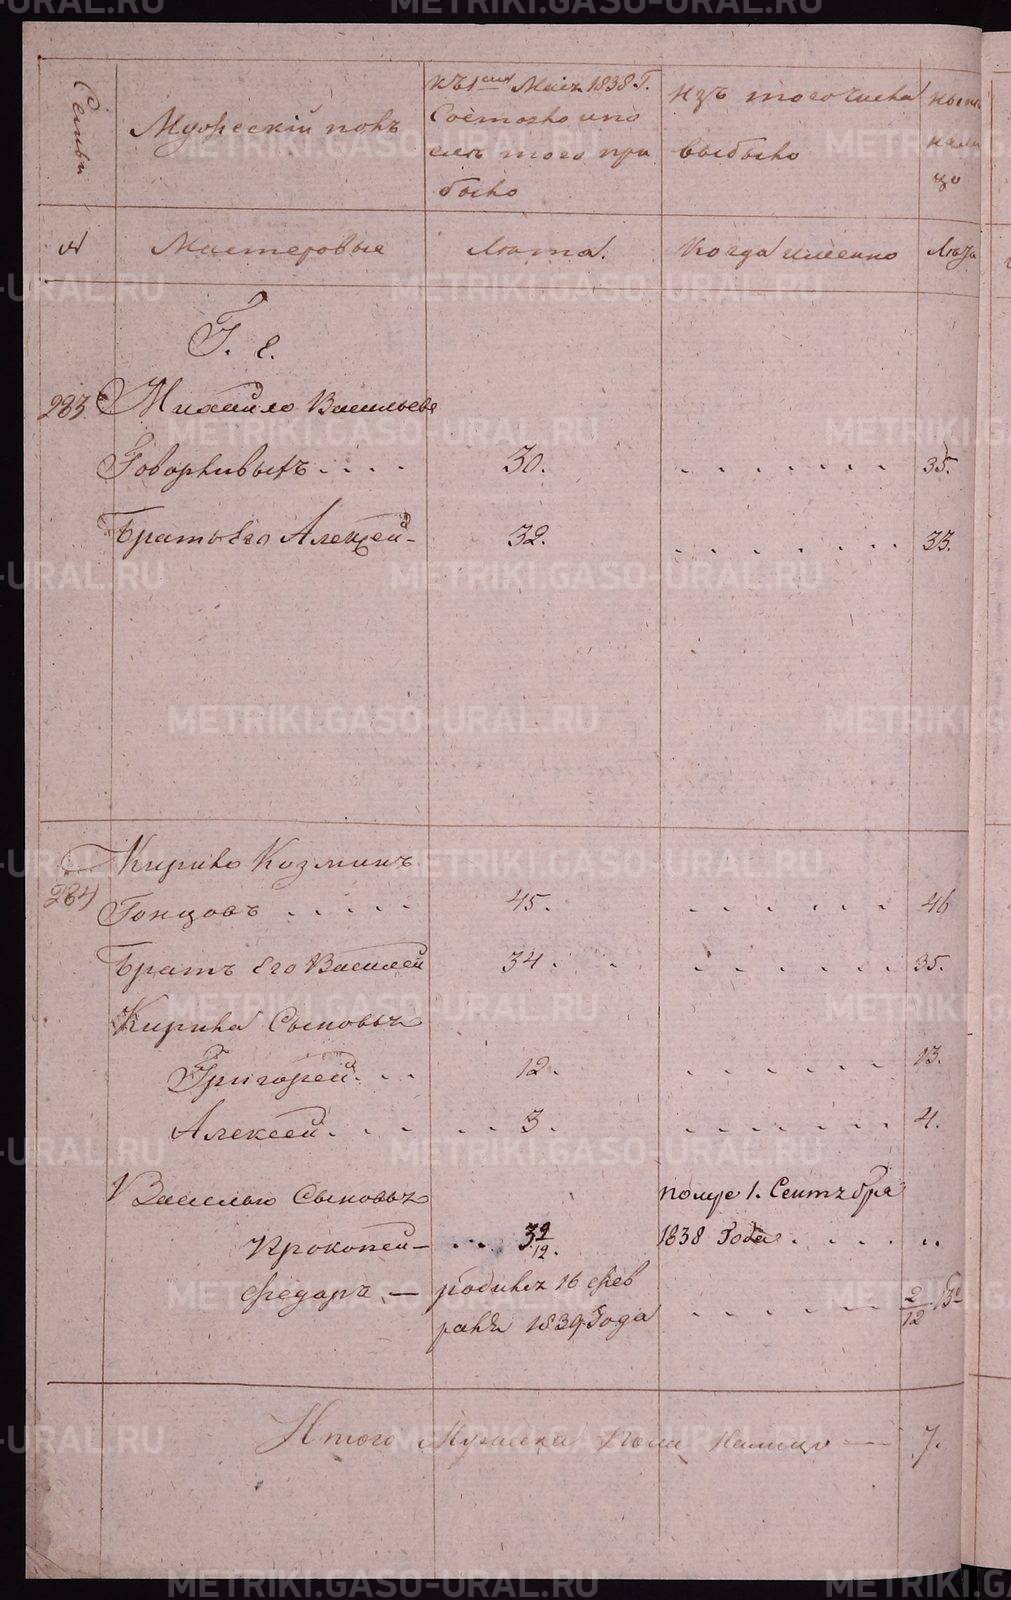 Семьи
Мужескій полъ
Къ 1 сия Маія 1838 г.
Состояло и по
слѣ того при
было
изъ того числа
выбыло
нынѣ
нали
цо
Мастеровые
Лѣта.
Когда именно
Лѣта
Г. е.
283
Михайло Васильевъ
Говорливыхъ . . . . 30. . . . . . . . 35.
Братъ Его Алексей – 32. . . . . . . . 33.
284
Кирило Козминъ
Гонцовъ . . . . . 45. . . . . . . 46
Братъ Его Василей 34. . . . . . . . 35.
Кирила Сыновья
Григорей . . . 12. . . . . . . 13.
Алексей . . . . . . 3. . . . . . . . 4.
Василья Сыновья
Прокопей – . . . 3 9/12.
помре 1. Сентября
1838 Года . . . . . ..
Федоръ — родился 16 фев
раля 1839 Года . . . . . . . 2/12
Итого Мужеска Пола Налицо — 7.
METRIKI.GASO-URAL.RU